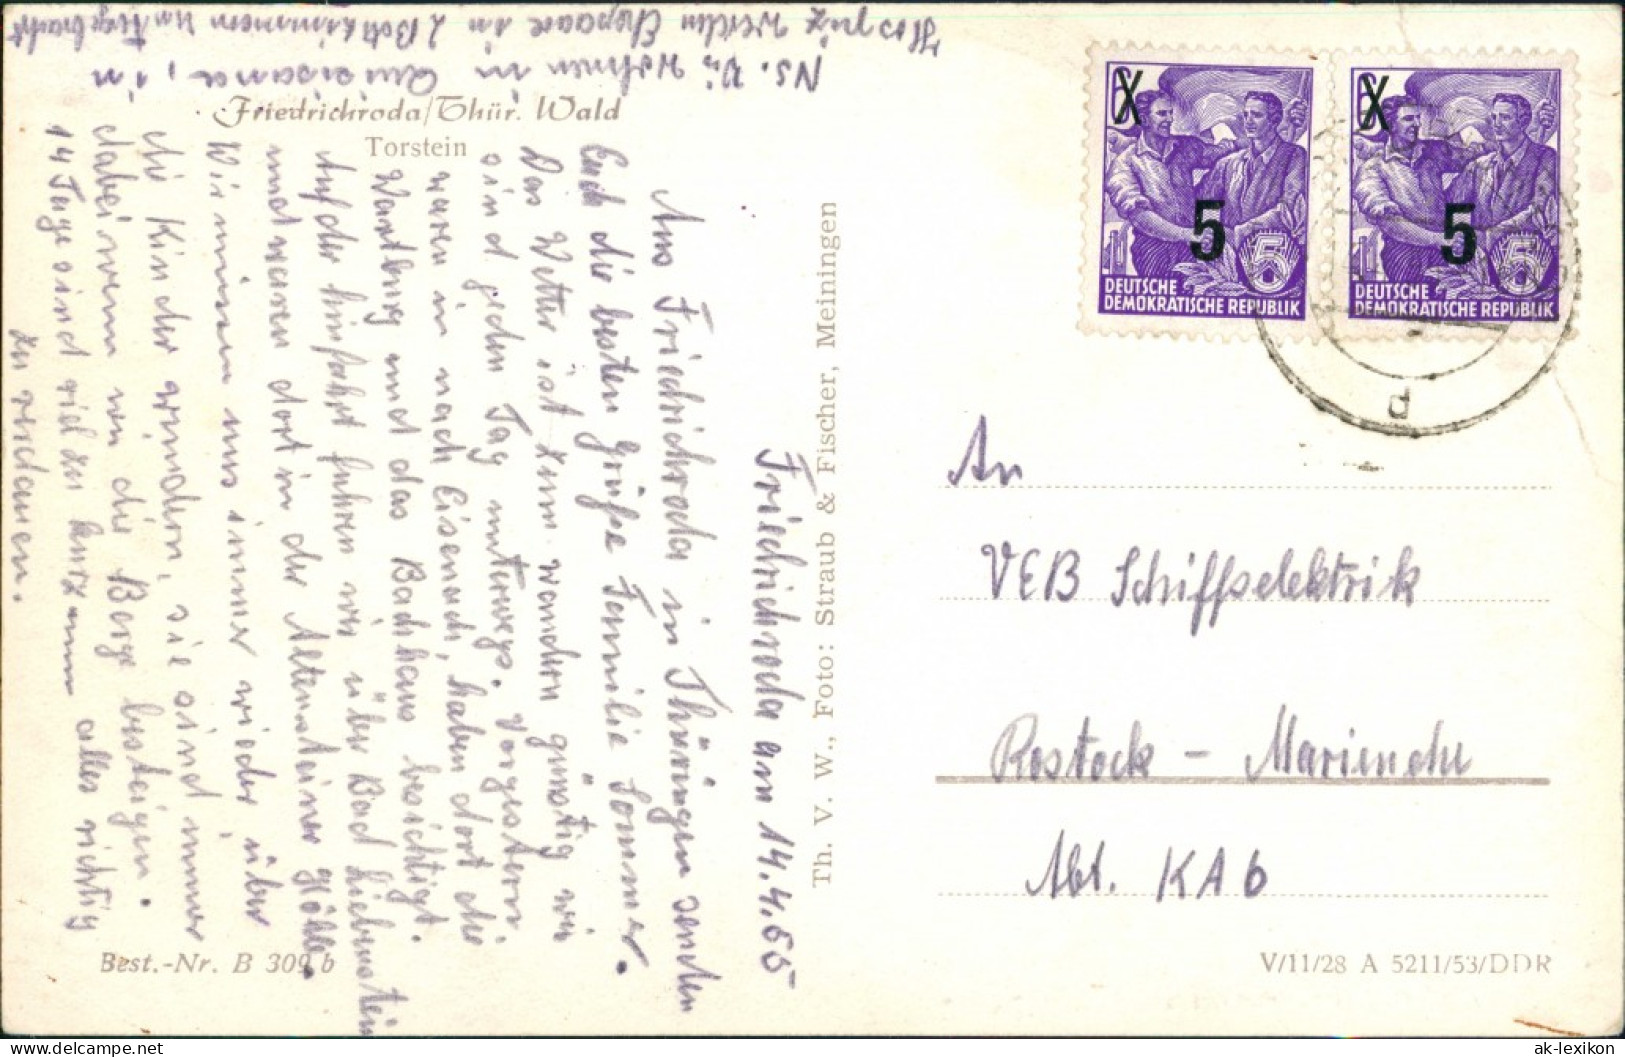 Friedrichroda/Thür. Wald
Torstein
Friedrichroda am 14.4.55
Aus Friedrichroda in Thüringen senden
Euch die besten Grüße Familie Sommer.
Das Wetter ist zum wandern günstig wir
sind jeden Tag unterwegs. Vorgestern
waren in nach Eisenach, haben dort die
Wartburg und das Bachhaus besichtigt.
Auf der hinfahrt fuhren wir über Bad Liebenstein
und waren dort in der Altensteiner Höhle.
Wir müssen uns immer wieder über
die Kinder wundern, sie sind immer
dabei wenn wir die Berge besteigen.
14 Tage sind viel zu kurz um alles richtig
zu verdauen.
NS. Wir wohnen im Quisisana, im
Hospiz werden Ehepaare in 2 Bettzimmern untergebracht
Best.-Nr. B 309 b
Th. V. W., Foto: Straub & Fischer, Meiningen
X
5
5
DEUTSCHE
DEMOKRATISCHE REPUBLIK
X
5
5
DEUTSCHE
DEMOKRATISCHE REPUBLIK
d
An
VEB Schiffselektrik
Rostock - Marienehe
Abt. KA 6
V/11/28 A 5211/53/DDR
www.ak-ansichtskarten.de
ak-lexikon